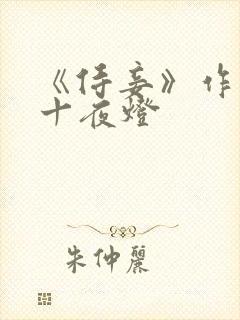 《侍妾》作
十夜燈
朱仲麗